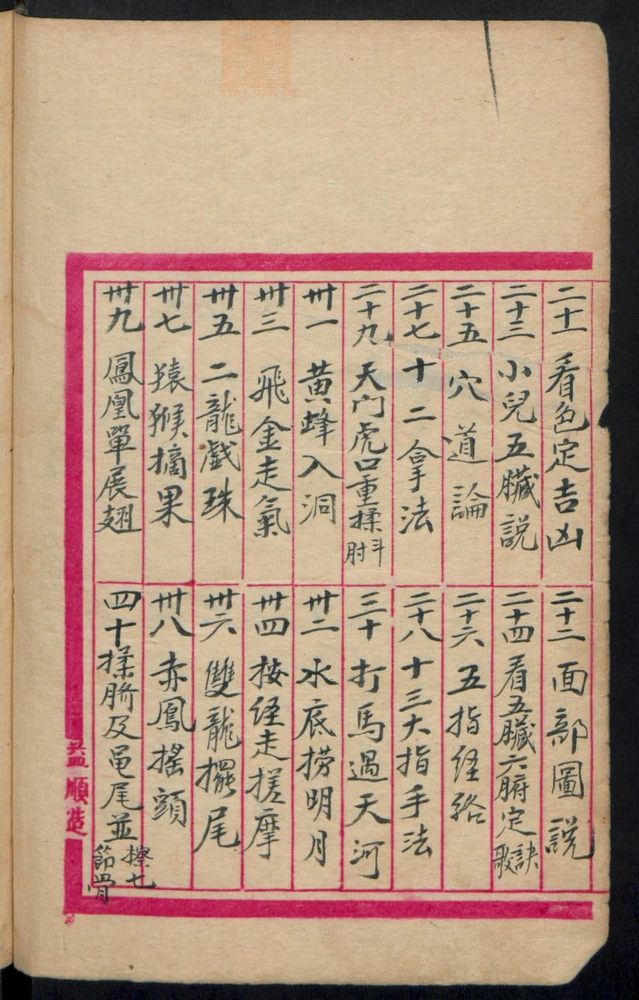 二十一 看色定吉凶
二十二 面部圖説
二十三 小兒五臟説
二十四 看五臟六腑定訣歌
二十五 穴道論
二十六 五指经络
二十七 十二拿法
二十八 十三大指手法
二十九 天门虎口重揉斗肘
三十 打馬過天河
卅一 黄蜂入洞
卅二 水底捞明月
卅三 飛金走氣
卅四 按经走搓摩
卅五 二龍戯珠
卅六 雙龍擺尾
卅七 猿猴摘果
卅八 赤鳳搖頭
卅九 鳳凰單展翅
四十 揉脐及黾尾並擦七節骨
順造